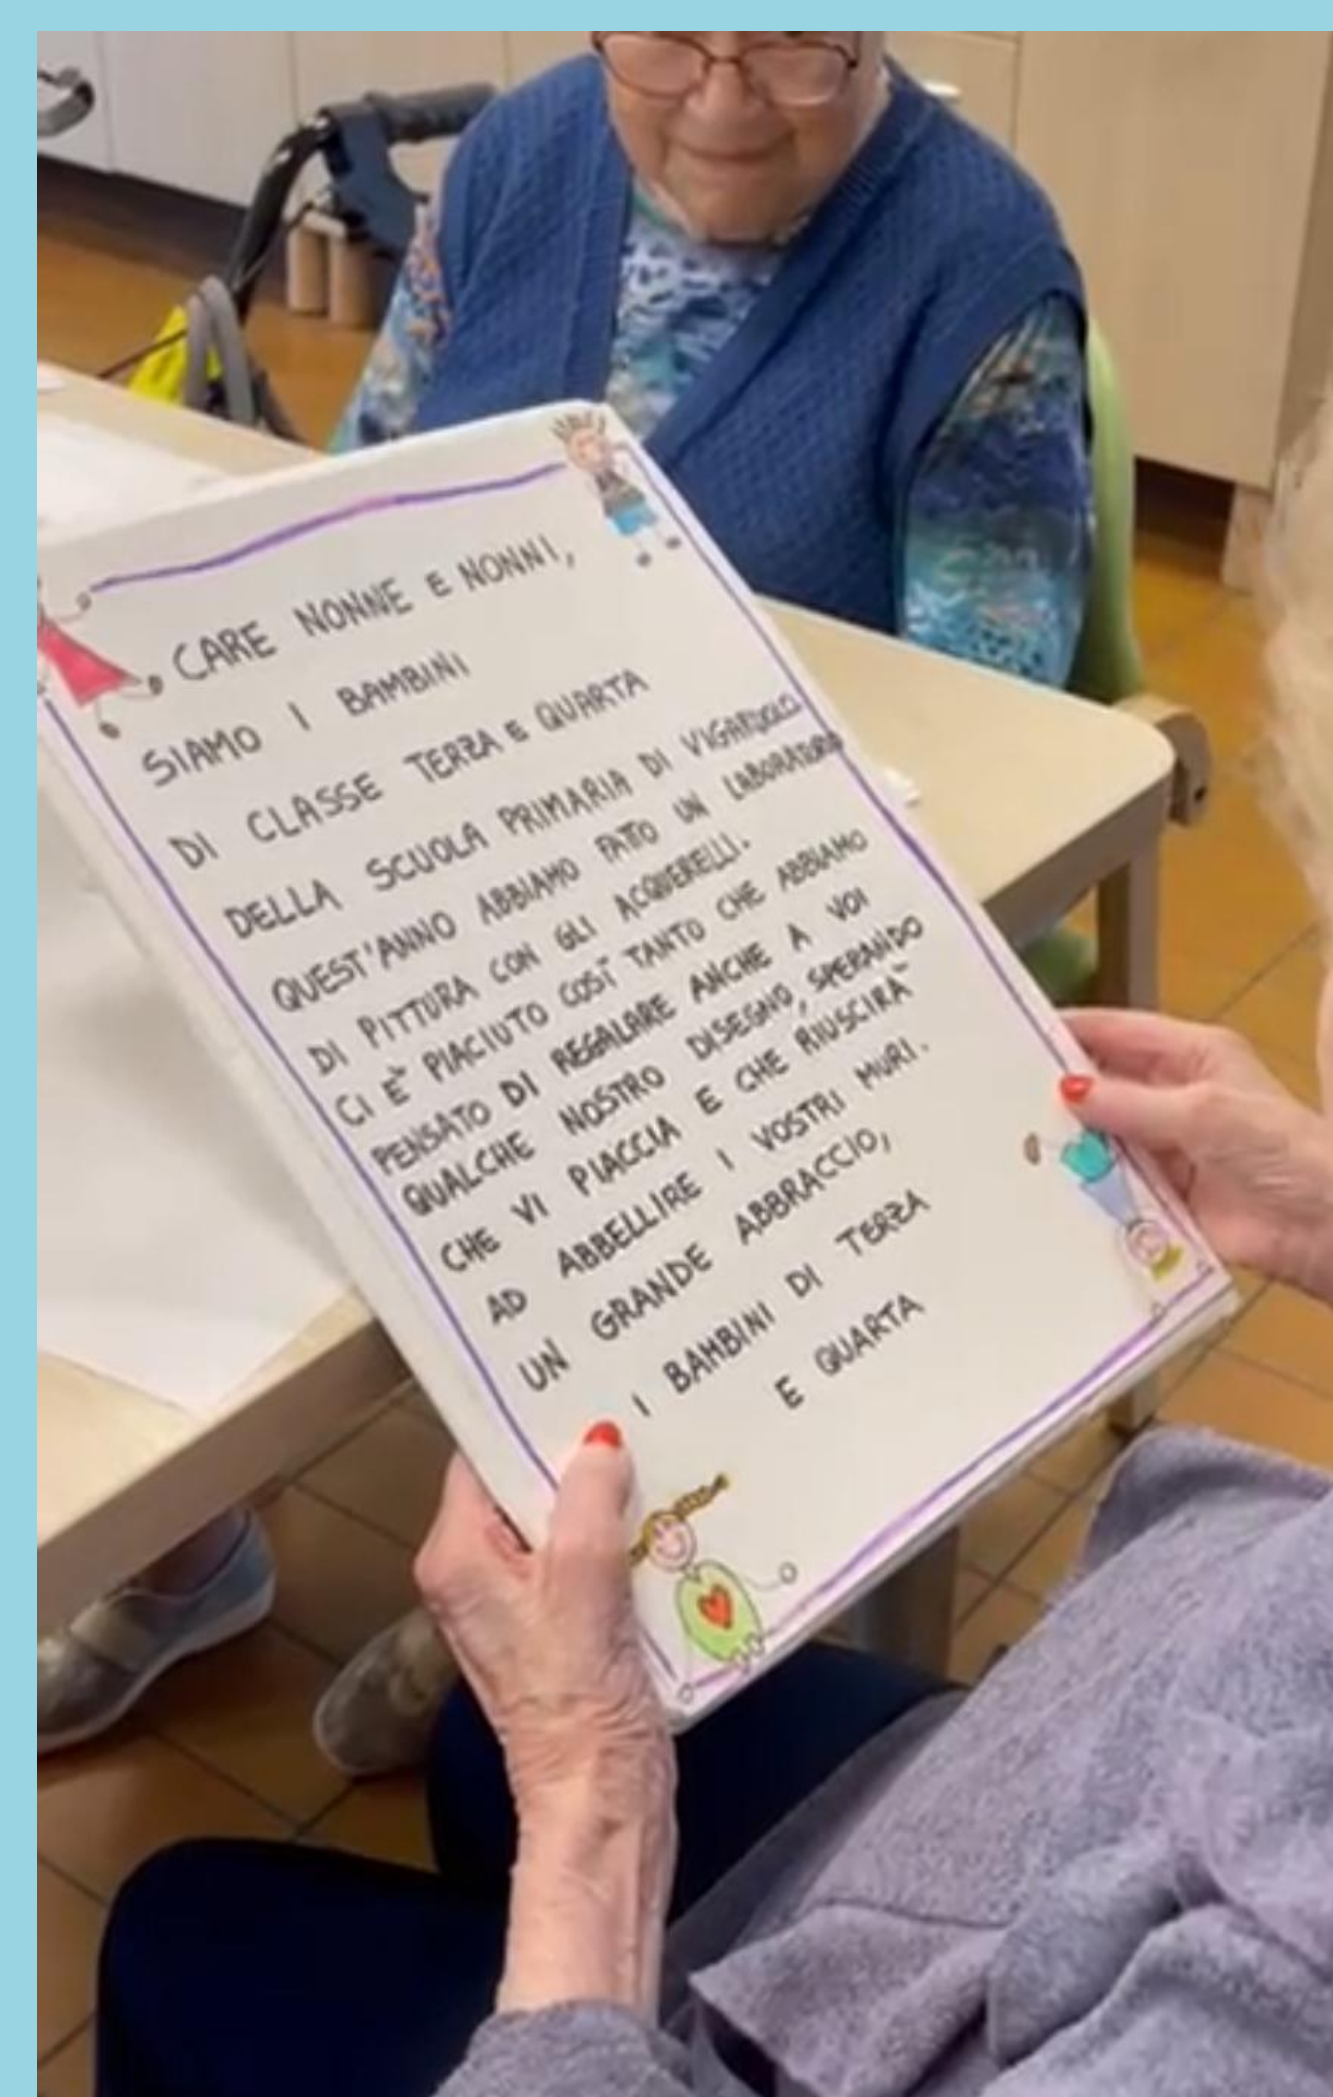 CARE NONNE E NONNI,
SIAMO I BAMBINI
DI CLASSE TERZA E QUARTA
DELLA SCUOLA PRIMARIA DI VIGARDOLO
QUEST'ANNO ABBIAMO FATTO UN LABORATORIO
DI PITTURA CON GLI ACQUERELLI.
CI È PIACIUTO COSÌ TANTO CHE ABBIAMO
PENSATO DI REGALARE ANCHE A VOI
QUALCHE NOSTRO DISEGNO, SPERANDO
CHE VI PIACCIA E CHE RIUSCIRÀ
AD ABBELLIRE I VOSTRI MURI.
UN GRANDE ABBRACCIO,
I BAMBINI DI TERZA
E QUARTA